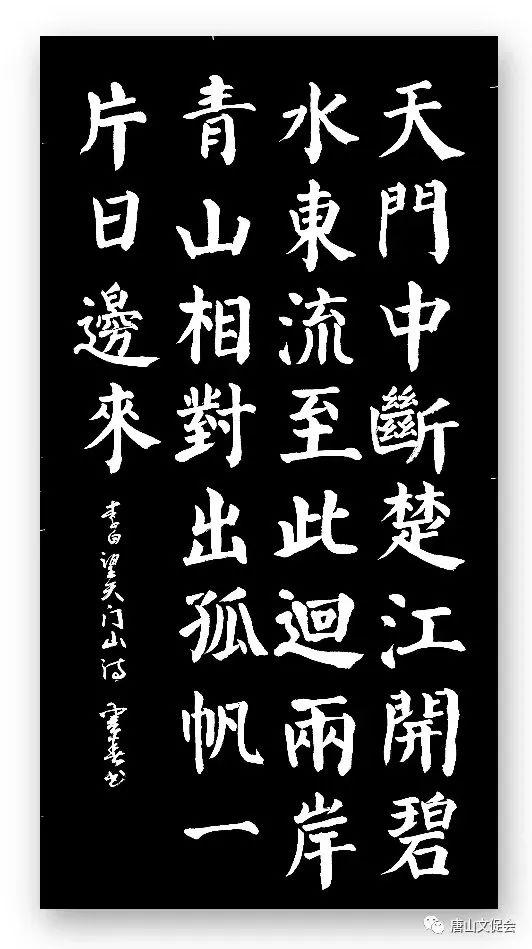 天門中斷楚江開碧
水東流至此迴兩岸
青山相對出孤帆一
片日邊來
李白望天门山诗
書
唐山文促会